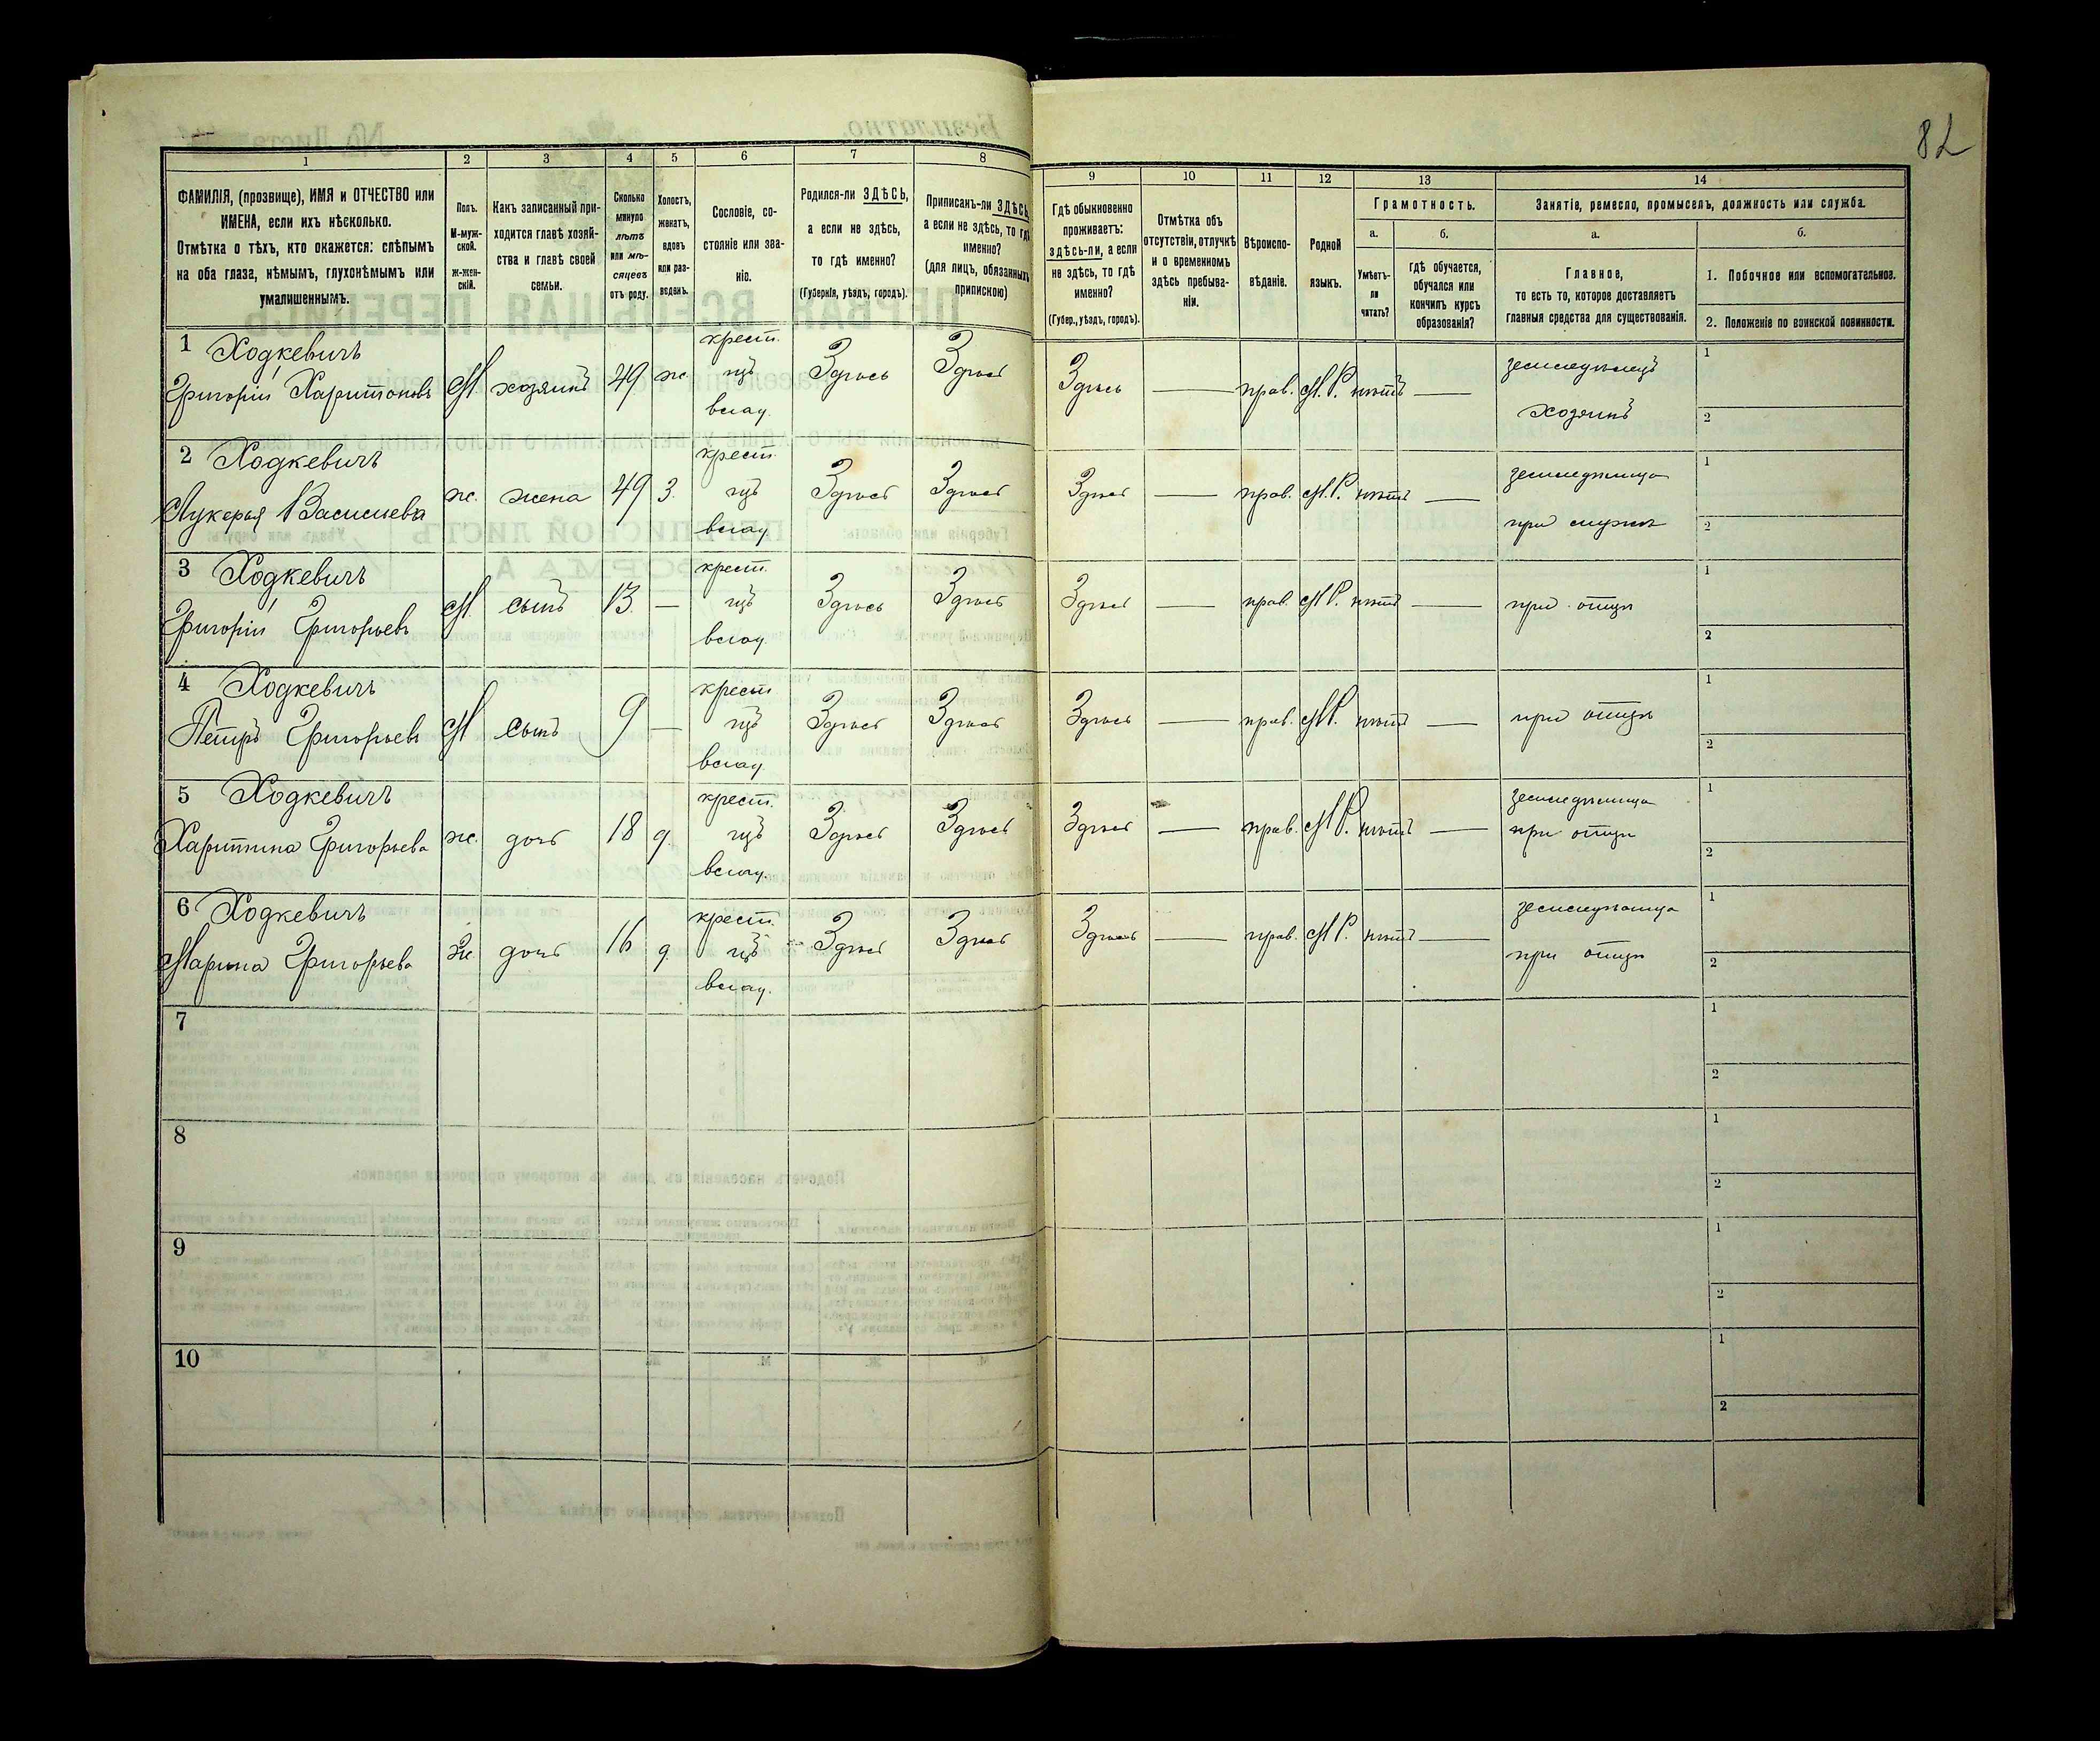 82
1
2
3
4
5
6
7
8
9
10
11
12
13
14
ФАМИЛІЯ, (прозвище), ИМЯ и ОТЧЕСТВО или
ИМЕНА, если ихъ нѣсколько.
Отмѣтка о тѣхъ, кто окажется: слѣпымъ
на оба глаза, нѣмымъ, глухонѣмымъ или
умалишеннымъ.
Полъ.
М-муж-
ской.
ж-жен-
скій.
Какъ записанный при-
ходится главѣ хозяй-
ства и главѣ своей
семьи.
Сколько
минуло
лѣтъ
или мѣ-
сяцевъ
отъ роду.
Холостъ,
женатъ,
вдовъ
или раз-
веденъ.
Сословіе, со-
стояніе или зва-
ніе.
Родился-ли ЗДѢСЬ,
а если не здѣсь,
то гдѣ именно?
(Губернія, уѣздъ, городъ).
Приписанъ-ли ЗДѢСЬ,
а если не здѣсь, то гдѣ
именно?
(для лицъ, обязанныхъ
припискою)
Гдѣ обыкновенно
проживаетъ:
здѣсь-ли, а если
не здѣсь, то гдѣ
именно?
(Губер., уѣздъ, городъ).
Отмѣтка объ
отсутствіи, отлучкѣ
и о временномъ
здѣсь пребыва-
ніи.
Вѣроиспо-
вѣданіе.
Родной
языкъ.
Грамотность.
а.
Умѣетъ-
ли
читать?
б.
гдѣ обучается,
обучался или
кончилъ курсъ
образованія?
Занятіе, ремесло, промыселъ, должность или служба.
а.
Главное,
то есть то, которое доставляетъ
главныя средства для существованія.
б.
1. Побочное или вспомогательное.
2. Положеніе по воинской повинности.
1 Ходкевичъ
Григорій Харитоновъ М. хозяинъ 49 ж. крест. изъ влад. Здѣсь Здѣсь Здѣсь — прав. М.Р. нѣтъ — земледѣлецъ хозяинъ 1 2
2 Ходкевичъ
Лукерья Васильева ж. жена 49 з. крест. изъ влад. Здѣсь Здѣсь Здѣсь — прав. М.Р. нѣтъ — земледѣлица при мужѣ 1 2
3 Ходкевичъ
Григорій Григорьевъ М. сынъ 13. — крест. изъ влад. Здѣсь Здѣсь Здѣсь — прав. М.Р. нѣтъ — при отцѣ 1 2
4 Ходкевичъ
Петръ Григорьевъ М сынъ 9 — крест. изъ влад. Здѣсь Здѣсь Здѣсь — прав. М.Р. нѣтъ — при отцѣ 1 2
5 Ходкевичъ
Харитина Григорьева ж. дочь 18 д. крест. изъ влад. Здѣсь Здѣсь Здѣсь — прав. М.Р. нѣтъ — земледѣлица при отцѣ 1 2
6 Ходкевичъ
Марина Григорьева ж. дочь 16 д крест. изъ влад. Здѣсь Здѣсь Здѣсь — прав. М.Р. нѣтъ — земледѣлица при отцѣ 1 2
7 1 2
8 1 2
9 1 2
10 1 2